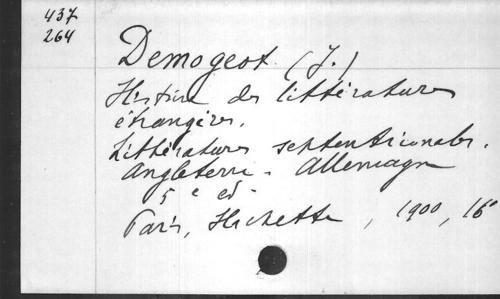 437
264
Demogeot (J.)
Histoire des littératures
étrangères.
Littératures septentrionales.
Angleterre - Allemagne
5e ed.
Paris, Hachette, 1900, 16°